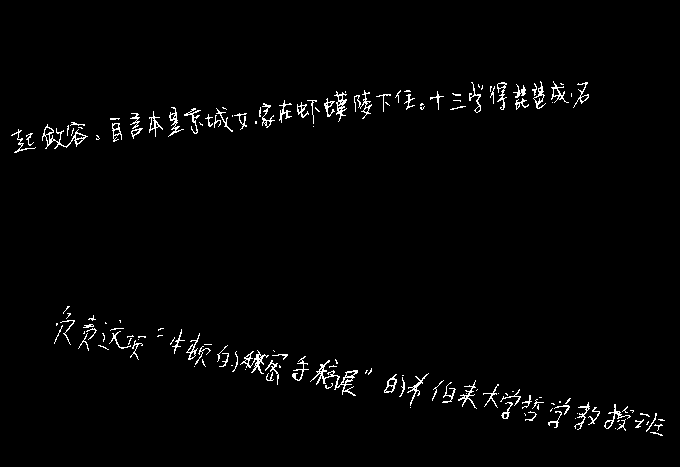 起敛容。自言本是京城女,家在虾蟆陵下住。十三学得琵琶成,名
负责这项“牛顿的秘密手稿展”的希伯来大学哲学教授班